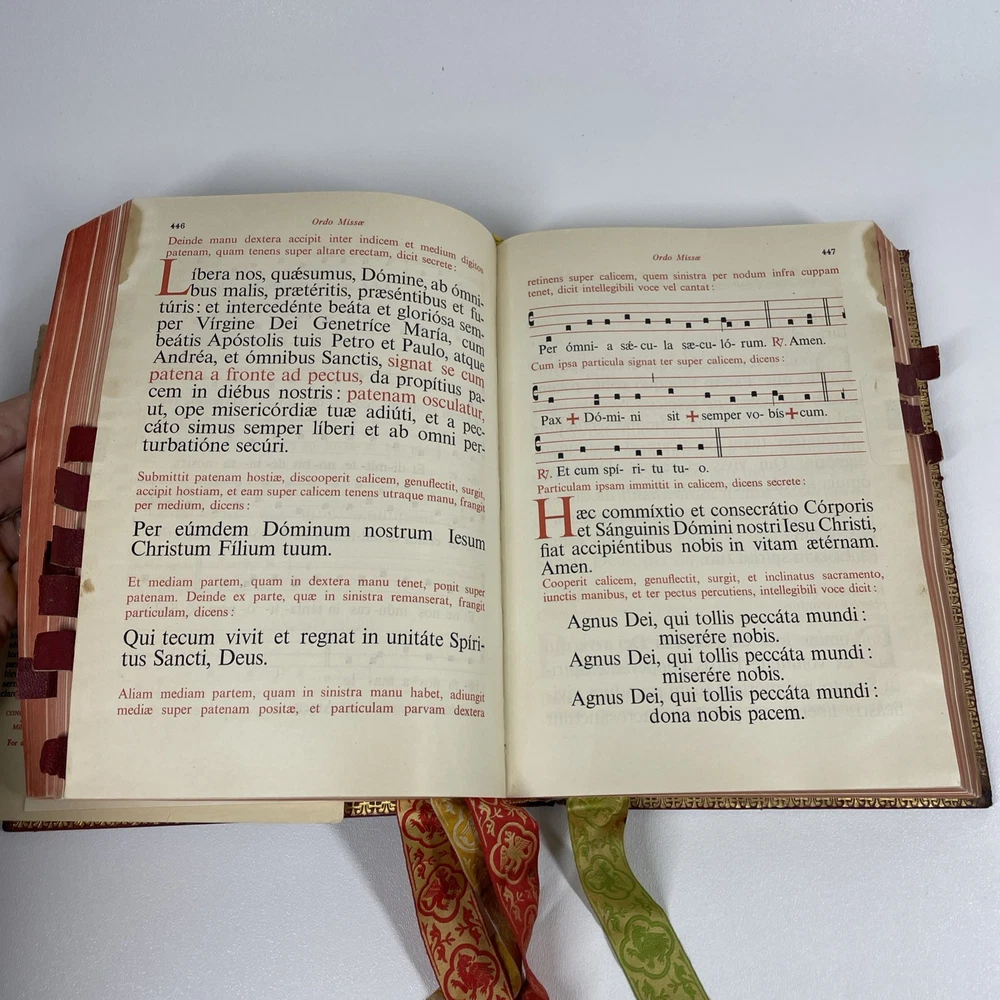 446
Ordo Missæ
Deinde manu dextera accipit inter indicem et medium digitos
patenam, quam tenens super altare erectam, dicit secrete:
Líbera nos, quǽsumus, Dómine, ab ómni-
bus malis, prætéritis, præséntibus et fu-
túris: et intercedénte beáta et gloriósa sem-
per Vírgine Dei Genetríce María, cum
beátis Apóstolis tuis Petro et Paulo, atque
Andréa, et ómnibus Sanctis, signat se cum
patena a fronte ad pectus, da propítius pa-
cem in diébus nostris: patenam osculatur,
ut, ope misericórdiæ tuæ adiúti, et a pec-
cáto simus semper líberi et ab omni per-
turbatióne secúri.
Submittit patenam hostiæ, discooperit calicem, genuflectit, surgit,
accipit hostiam, et eam super calicem tenens utraque manu, frangit
per medium, dicens:
Per eúmdem Dóminum nostrum Iesum
Christum Fílium tuum.
Et mediam partem, quam in dextera manu tenet, ponit super
patenam. Deinde ex parte, quæ in sinistra remanserat, frangit
particulam, dicens:
Qui tecum vivit et regnat in unitáte Spíri-
tus Sancti, Deus.
Aliam mediam partem, quam in sinistra manu habet, adiungit
mediæ super patenam positæ, et particulam parvam dextera
Ordo Missæ
447
retinens super calicem, quem sinistra per nodum infra cuppam
tenet, dicit intellegibili voce vel cantat:
Per ómni- a sæ- cu- la sæ-cu- ló- rum. ℟. Amen.
Cum ipsa particula signat ter super calicem, dicens:
Pax ✠ Dó-mi- ni sit ✠ semper vo- bís ✠ cum.
℟. Et cum spí- ri- tu tu- o.
Particulam ipsam immittit in calicem, dicens secrete:
Hæc commíxtio et consecrátio Córporis
et Sánguinis Dómini nostri Iesu Christi,
fiat accipiéntibus nobis in vitam ætérnam.
Amen.
Cooperit calicem, genuflectit, surgit, et inclinatus sacramento,
iunctis manibus, et ter pectus percutiens, intellegibili voce dicit:
Agnus Dei, qui tollis peccáta mundi:
miserére nobis.
Agnus Dei, qui tollis peccáta mundi:
miserére nobis.
Agnus Dei, qui tollis peccáta mundi:
dona nobis pacem.